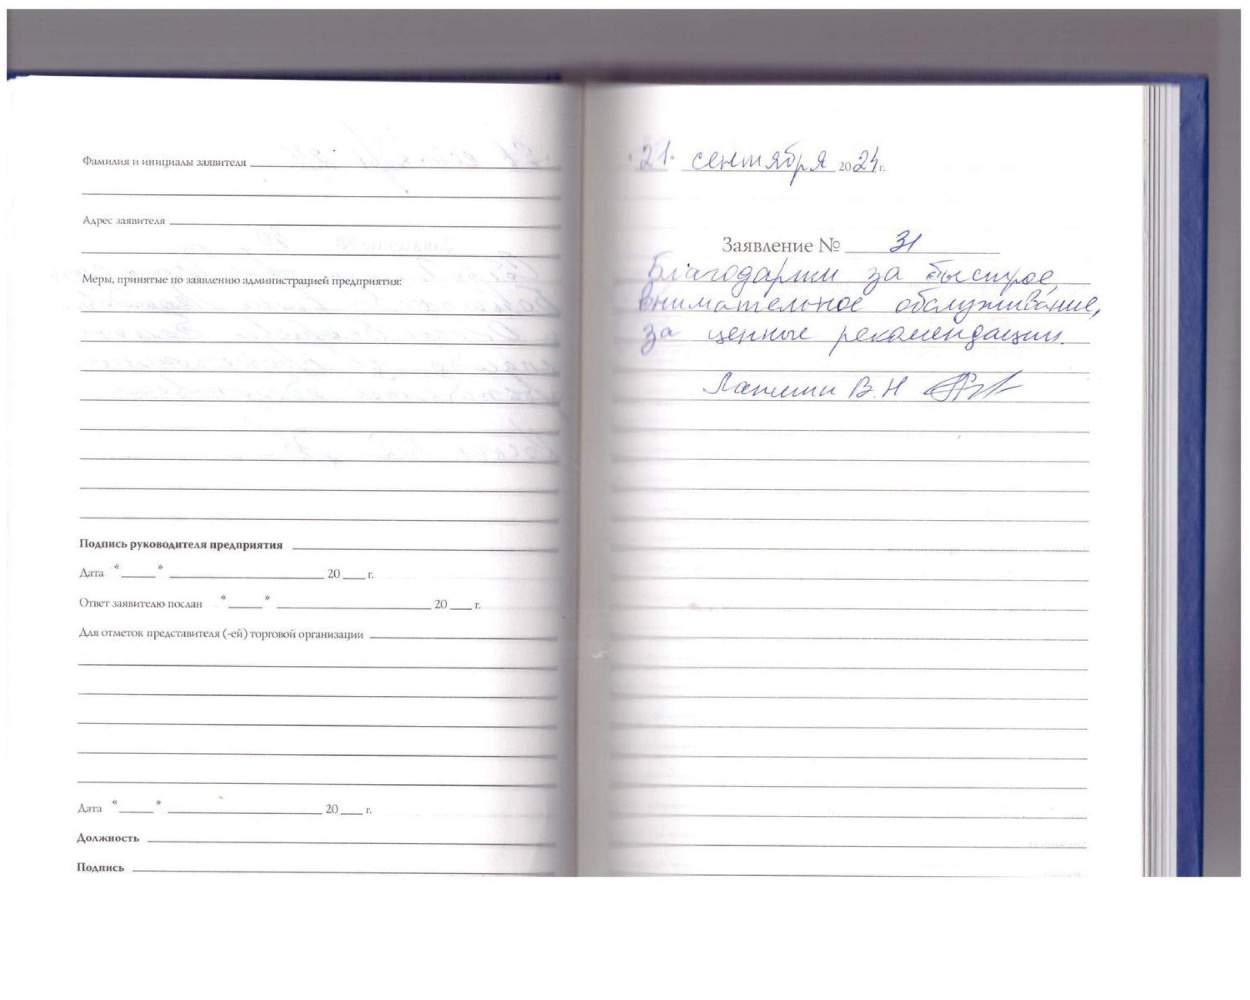 Фамилия и инициалы заявителя
Адрес заявителя
Меры, принятые по заявлению администрацией предприятия:
Подпись руководителя предприятия
Дата « » 20 г.
Ответ заявителю послан « » 20 г.
Для отметок представителя (-ей) торговой организации
Дата « » 20 г.
Должность
Подпись
21. сентября 2024 г.
Заявление № 31
Благодарим за быстрое,
внимательное обслуживание,
за ценные рекомендации.
В.Н